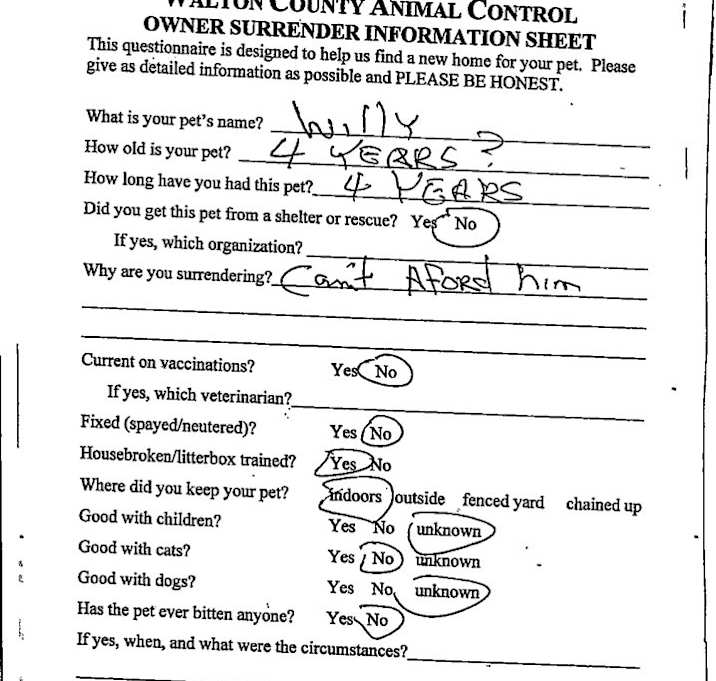 WALTON COUNTY ANIMAL CONTROL
OWNER SURRENDER INFORMATION SHEET
This questionnaire is designed to help us find a new home for your pet. Please
give as detailed information as possible and PLEASE BE HONEST.
What is your pet's name? Willy
How old is your pet? 4 YEARS ?
How long have you had this pet? 4 YEARS
Did you get this pet from a shelter or rescue? Yes No
If yes, which organization?
Why are you surrendering? Can't AFORD him
Current on vaccinations? Yes No
If yes, which veterinarian?
Fixed (spayed/neutered)? Yes No
Housebroken/litterbox trained? Yes No
Where did you keep your pet? indoors outside fenced yard chained up
Good with children? Yes No unknown
Good with cats? Yes No unknown
Good with dogs? Yes No unknown
Has the pet ever bitten anyone? Yes No
If yes, when, and what were the circumstances?